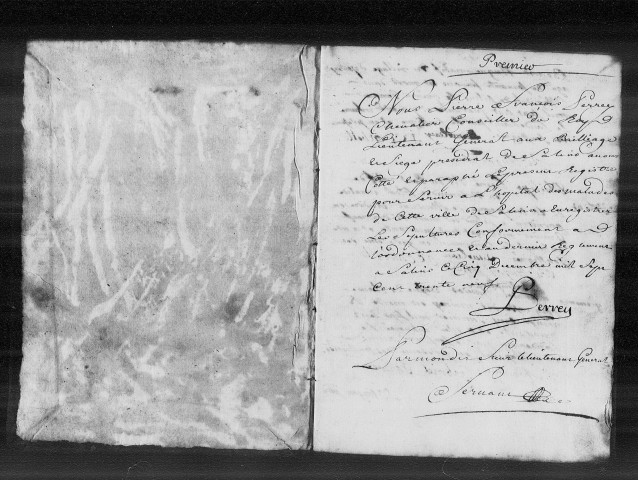 Premier
Nous Pierre François Perrey
Chevalier Conseiller du Roy
Lieutenant General au Bailliage
et Siege presidial de Salins avons
Cotté et paraphé le present Registre
pour Servir a l'hopital des malades
de Cette ville de Salins a Enregistrer
Les Sepultures Conformement a
l'ordonnance et au dernier Reglement
a Salins Ce Cinq Decembre mil Sept
Cent trente neuf
Perrey
Par mondit Sieur le lieutenant General